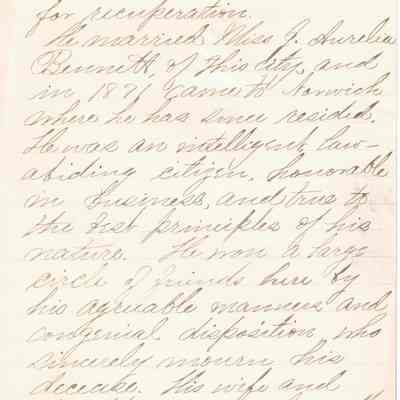 for recuperation.
He married Miss J. Aurelia
Bennett, of this city, and
in 1871 came to Norwich
where he has since resided.
He was an intelligent law-
abiding citizen, honorable
in business, and true to
the best principles of his
nature. He won a large
circle of friends here by
his agreeable manners and
congenial disposition who
sincerely mourn his
decease. His wife and